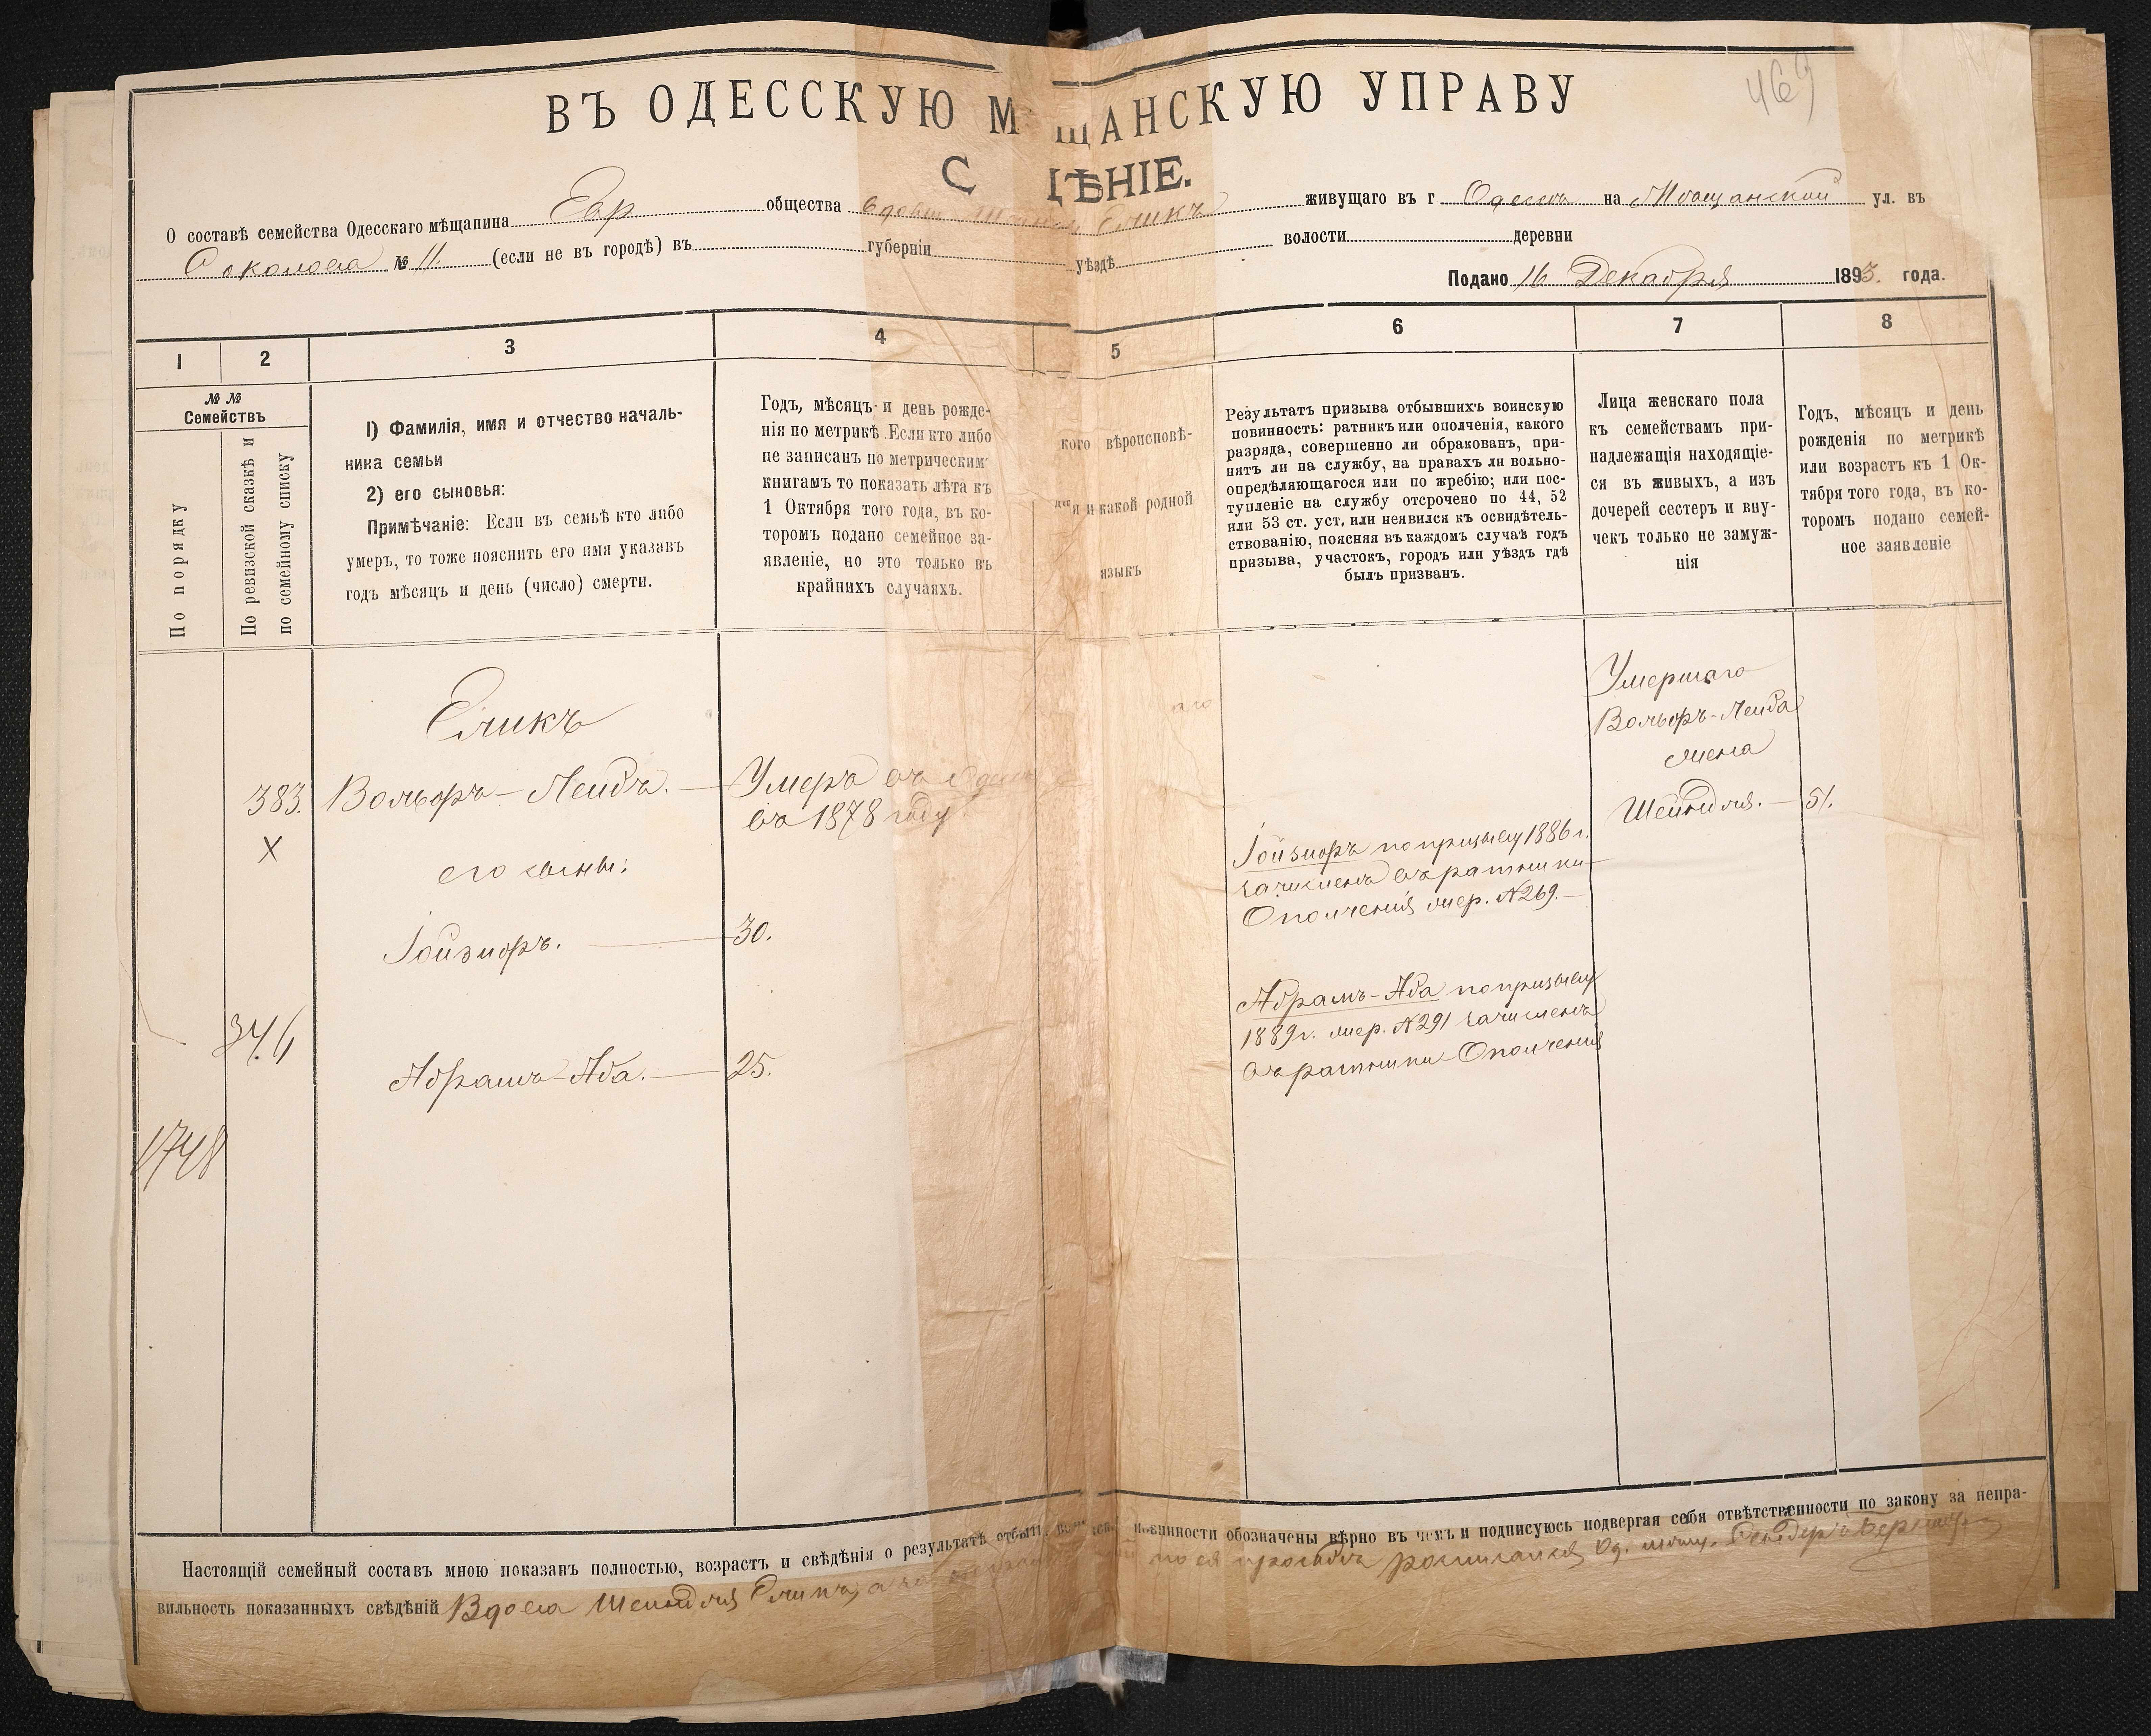 469
ВЪ ОДЕССКУЮ М ЩАНСКУЮ УПРАВУ
С ДѢНІЕ.
О составѣ семейства Одесскаго мѣщанина Евр общества вдовы Шейндля Еликъ живущаго въ г Одессѣ на Мѣщанской ул. въ
Соколова № 11. (если не въ городѣ) въ губерніи уѣздѣ волости деревни
Подано 16 Декабря 1893. года.
1 2 3 4 5 6 7 8
№ №
Семействъ
По порядку
По ревизской сказкѣ и
по семейному списку
1) Фамилія, имя и отчество началь-
ника семьи
2) его сыновья:
Примѣчаніе: Если въ семьѣ кто либо
умеръ, то тоже пояснить его имя указавъ
годъ мѣсяцъ и день (число) смерти.
Годъ, мѣсяцъ и день рожде-
нія по метрикѣ Если кто либо
не записанъ по метрическимъ
книгамъ то показать лѣта къ
1 Октября того года, въ ко-
торомъ подано семейное за-
явленіе, но это только въ
крайнихъ случаяхъ.
кого вѣроисповѣ-
я и какой родной
языкъ
Результатъ призыва отбывшихъ воинскую
повинность: ратникъ или ополченія, какого
разряда, совершенно ли обракованъ, при-
нятъ ли на службу, на правахъ ли вольно-
опредѣляющагося или по жребію; или пос-
тупленіе на службу отсрочено по 44, 52
или 53 ст. уст, или неявился къ освидѣтель-
ствованію, поясняя въ каждомъ случаѣ годъ
призыва, участокъ, городъ или уѣздъ гдѣ
былъ призванъ.
Лица женскаго пола
къ семействамъ при-
надлежащія находящіе-
ся въ живыхъ, а изъ
дочерей сестеръ и вну-
чекъ только не замуж-
нія
Годъ, мѣсяцъ и день
рожденія по метрикѣ
или возрастъ къ 1 Ок-
тября того года, въ ко-
торомъ подано семей-
ное заявленіе
Еликъ
383. Вольфъ-Лейбъ. — Умеръ въ Одессѣ
въ 1878 году
X
его сыны:
Іойзифъ. — 30.
34.6
Абрамъ-Аба. — 25.
1748
Іойзифъ по призыву 1886 г.
зачисленъ въ ратники
Ополченія жер. №269.—
Абрамъ-Аба по призыву
1889г. жер. №291 зачисленъ
въ ратники Ополченія
Умершаго
Вольфъ-Лейба
жена
Шейндля. — 51.
Настоящій семейный составъ мною показанъ полностью, возрастъ и свѣдѣнія о результатѣ отбыт. повинности обозначены вѣрно въ чемъ и подписуюсь подвергая себя отвѣтственности по закону за непра-
вильность показанныхъ свѣдѣній Вдова Шейндля Еликъ, а за по ея просьбѣ росписался Од. мѣщ.